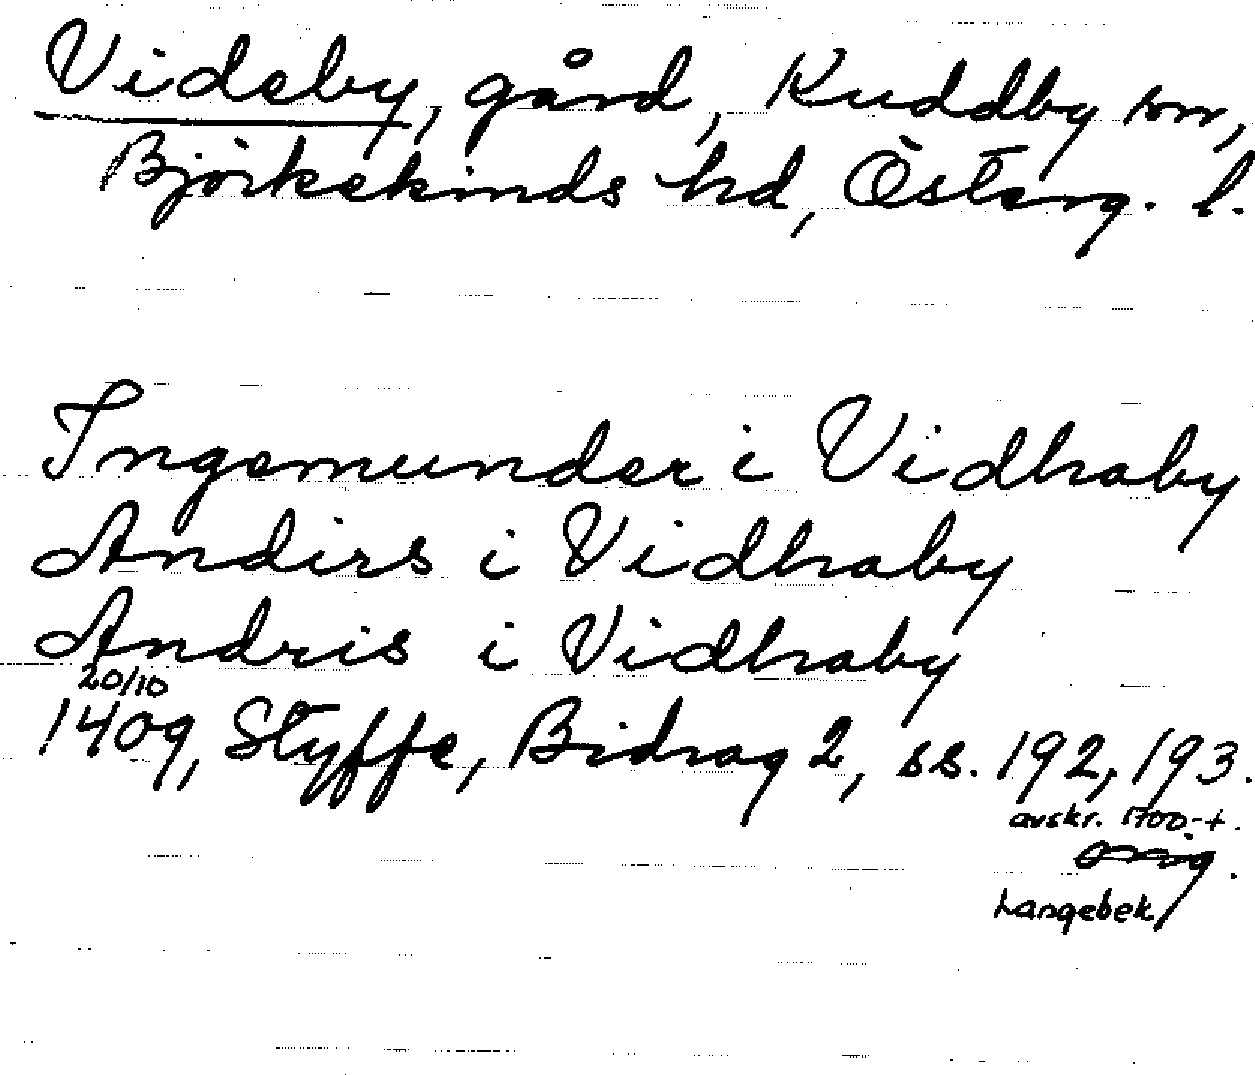 Videby, gård, Kuddby sn,
Björkekinds hd, Österg. l.
Ingemunder i Vidhaby
Andirs i Vidhaby
Andris i Vidhaby
20/10
1409, Styffe, Bidrag 2, ss. 192, 193.
avskr. 1700-t.
orig.
Langebek